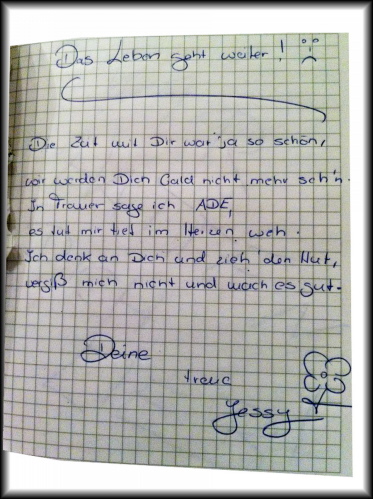 Das Leben geht weiter!
Die Zeit mit Dir war ja so schön,
wir werden Dich Bald nicht mehr seh'n.
In Trauer sage ich ADE,
es tut mir tief im Herzen weh.
Ich denk an Dich und zieh' den Hut,
vergiß mich nicht und mach es gut.
Deine
treue
Jessy